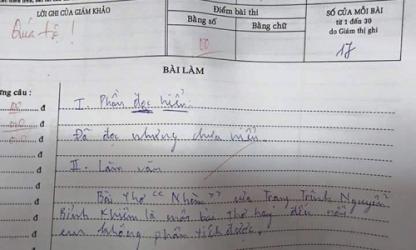 LỜI GHI CỦA GIÁM KHẢO
Quá tệ!
Điểm bài thi
Bằng số
Bằng chữ
SỐ CỦA MỖI BÀI
từ 1 đến 30
do Giám thị ghi
17
BÀI LÀM
ng câu :
đ
I. Phần đọc hiểu.
đ
Đã đọc nhưng chưa hiểu
đ
II. Làm văn
đ
Bài thơ "Nhàn" của Trạng Trình Nguyễn
đ
Bỉnh Khiêm là một bài thơ hay đến nỗi
đ
em không phân tích được.